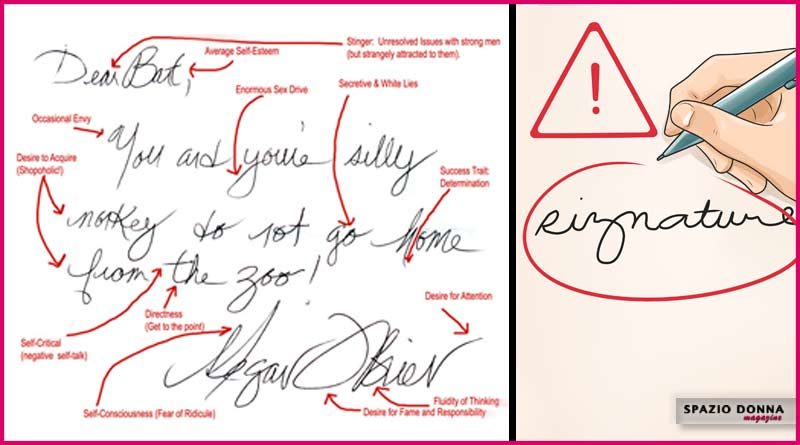 Stinger: Unresolved Issues with strong men
(but strangely attracted to them).
Average Self-Esteem
Dear Bart,
Enormous Sex Drive
Secretive & White Lies
Occasional Envy
You and you're silly
Desire to Acquire
(Shopoholic!)
Success Trait:
Determination
monkey do not go home
from the zoo!
Directness
(Get to the point)
Desire for Attention
Self-Critical
(negative self-talk)
Megan O'Brien
Self-Consciousness (Fear of Ridicule)
Fluidity of Thinking
Desire for Fame and Responsibility
!
signature
SPAZIO DONNA
magazine